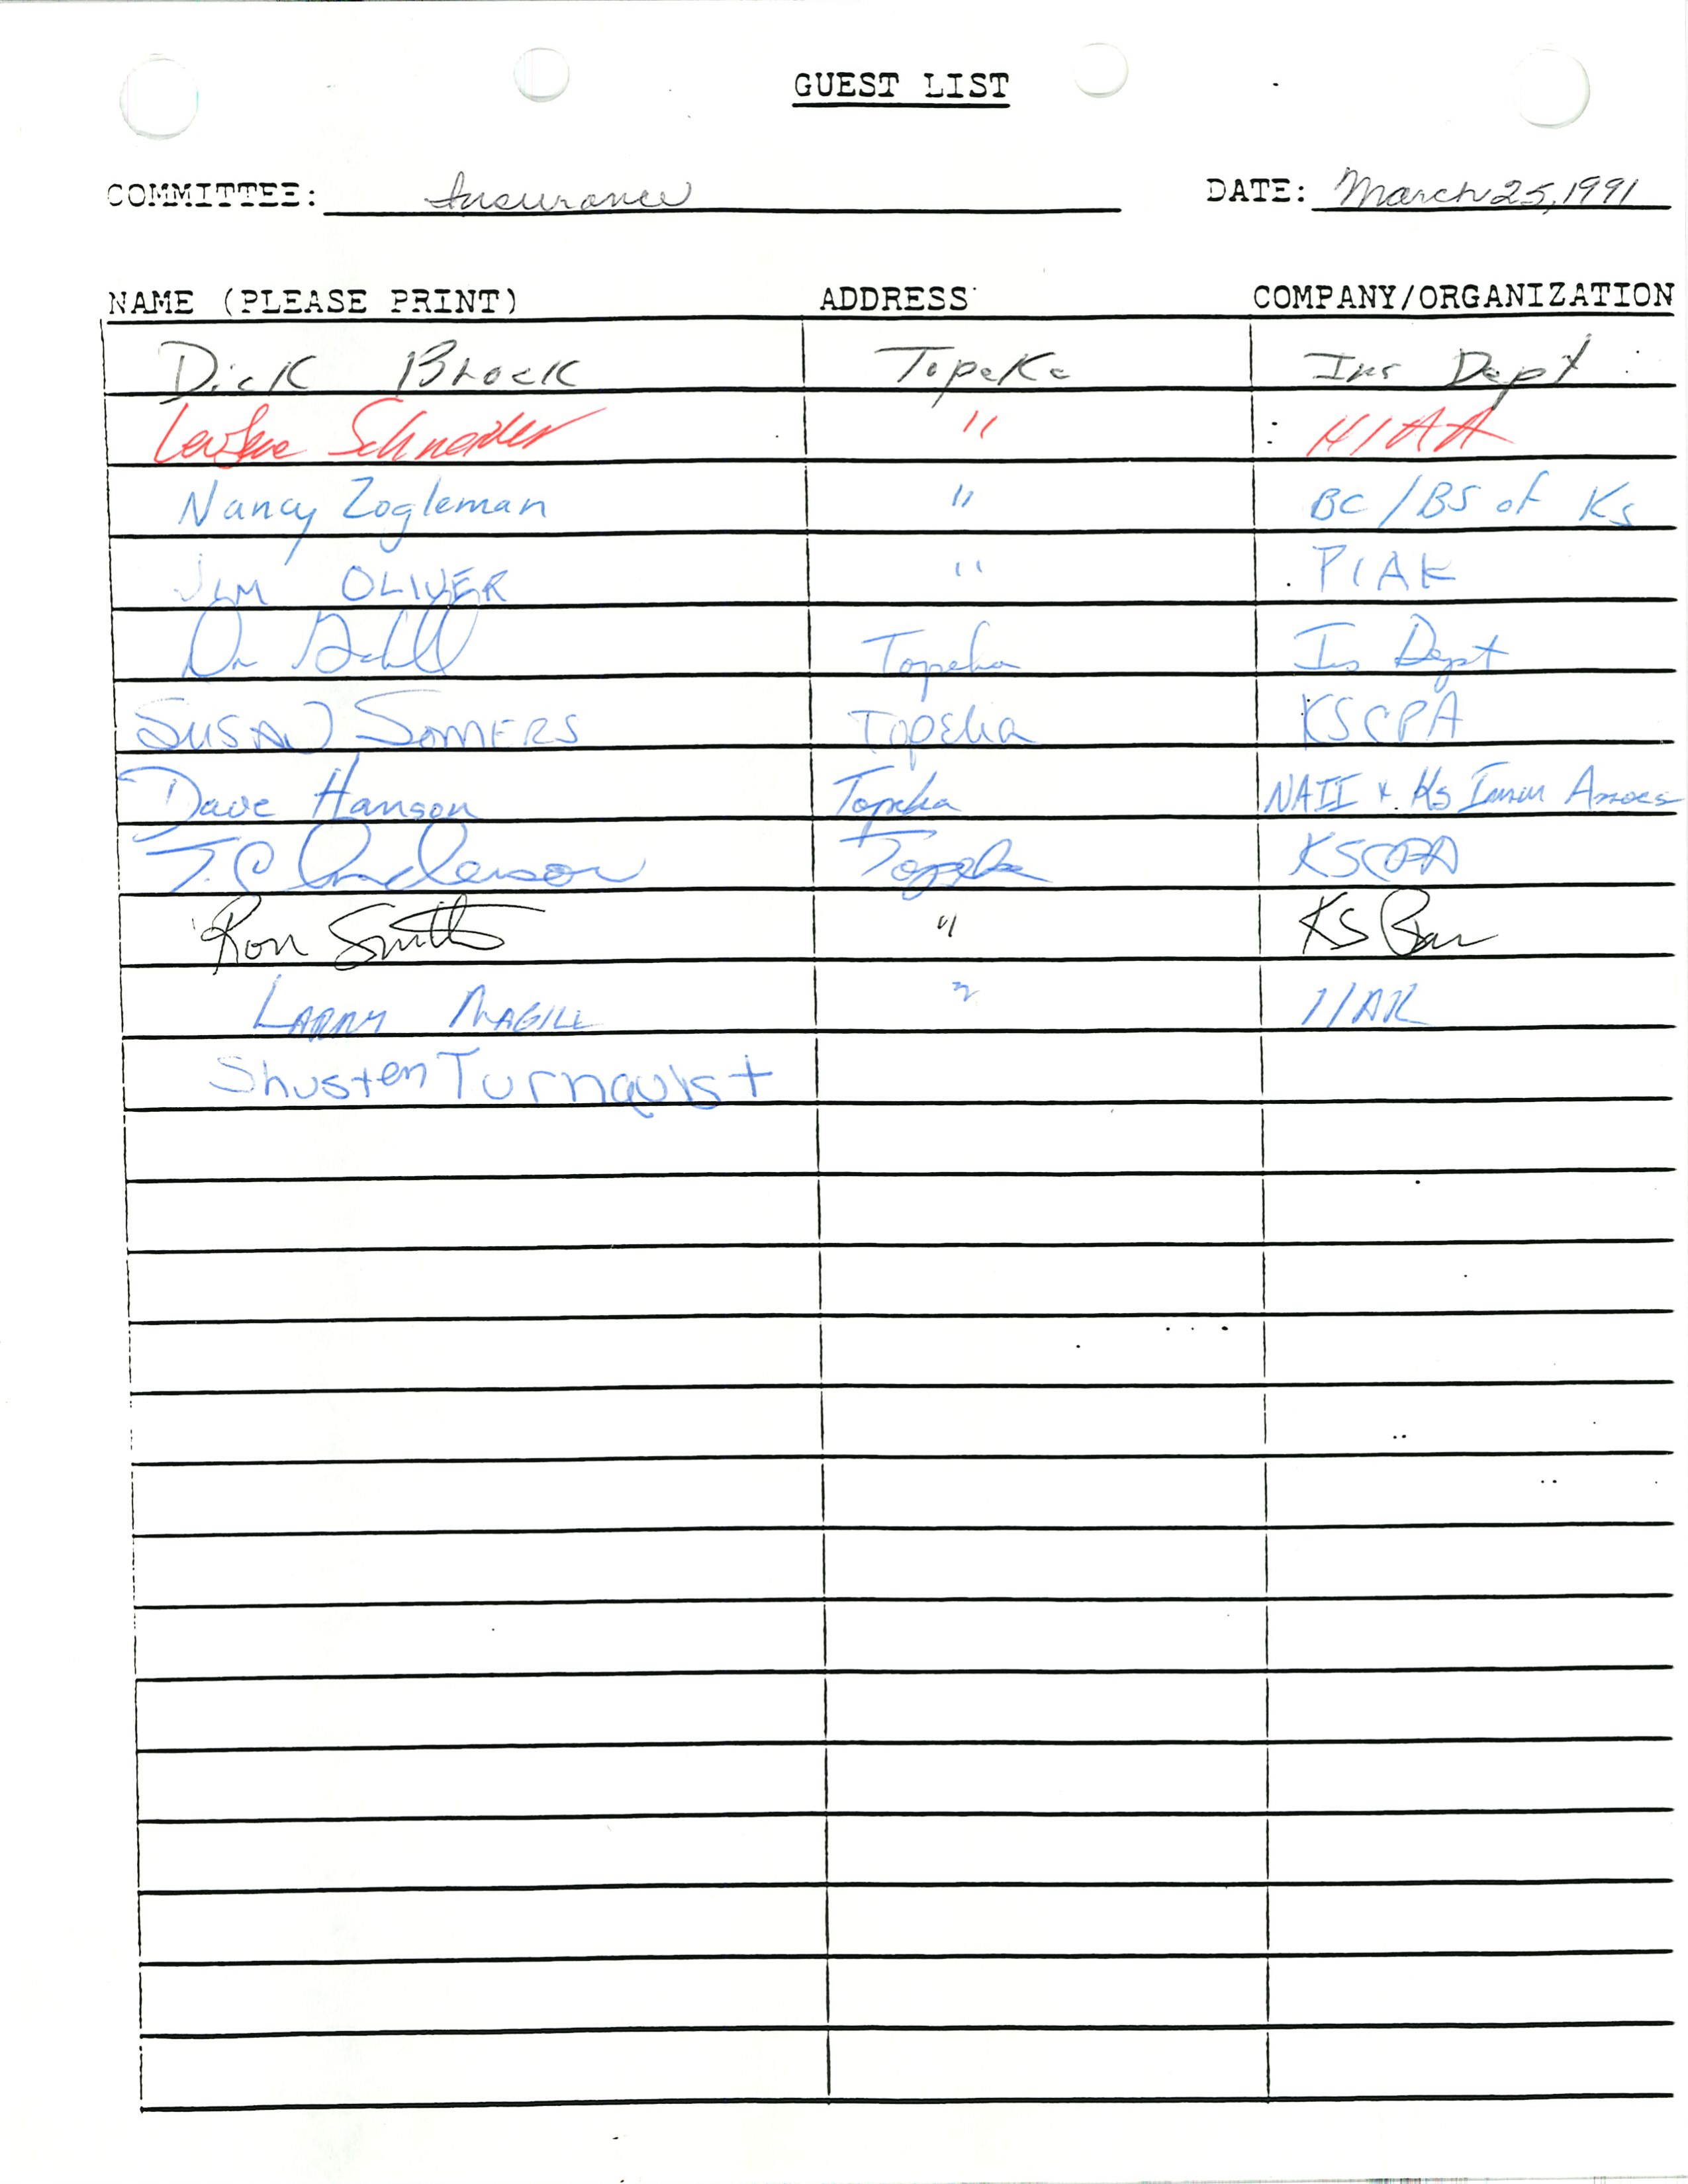 GUEST LIST
COMMITTEE: Insurance DATE: March 25, 1991
NAME (PLEASE PRINT) ADDRESS COMPANY/ORGANIZATION
Dick Brock Topeka Ins Dept
Schneider " HIAA
Nancy Zogleman " BC/BS of Ks
JIM OLIVER " PIAK
Topeka Ins Dept
SUSAN SOMERS Topeka KSCPA
Dave Hanson Topeka NAII & Ks Insur Assocs
T.C. Anderson Topeka KSCPA
Ron Smith " KS Bar
LARRY MAGILL " IIAK
Turnquist